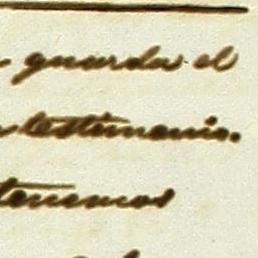 guarda el
testimonio.
tenemos